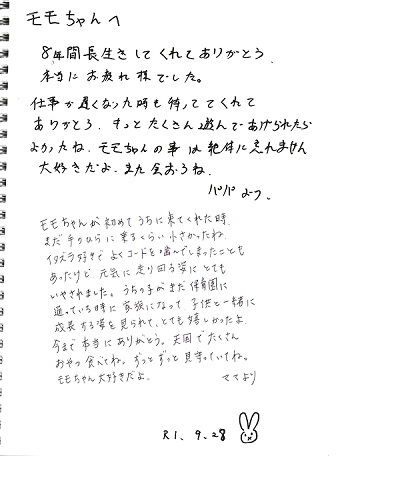 モモちゃんへ
8年間長生きしてくれてありがとう.
本当にお疲れ様でした。
仕事が遅くなった時も待っててくれて
ありがとう. もっとたくさん遊んであげられたら
よかったね. モモちゃんの事は絶体に忘れません
大好きだよ. また会おうね.
パパより.
モモちゃんが初めてうちに来てくれた時
まだ手のひらに乗るくらい小さかったね.
イタズラ好きでよくコードを噛んでしまったことも
あったけど 元気に走り回る姿にとても
いやされました。うちの子がまだ保育園に
通っている時に家族になって 子供と一緒に
成長する姿を見られて、とても嬉しかったよ.
今まで本当にありがとう。天国でたくさん
おやつ食べてね。ずっとずっと見守っていてね。
モモちゃん大好きだよ. ママより
R1. 9. 28